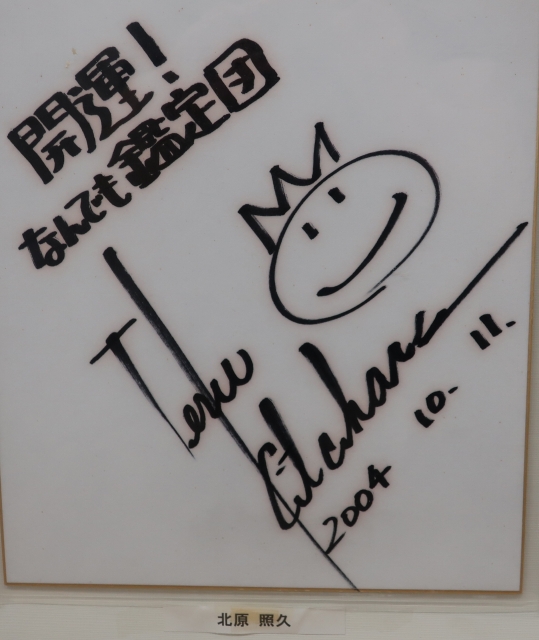 開運!
なんでも鑑定団
Teru Kitahara
2004 10. 11.
北原 照久